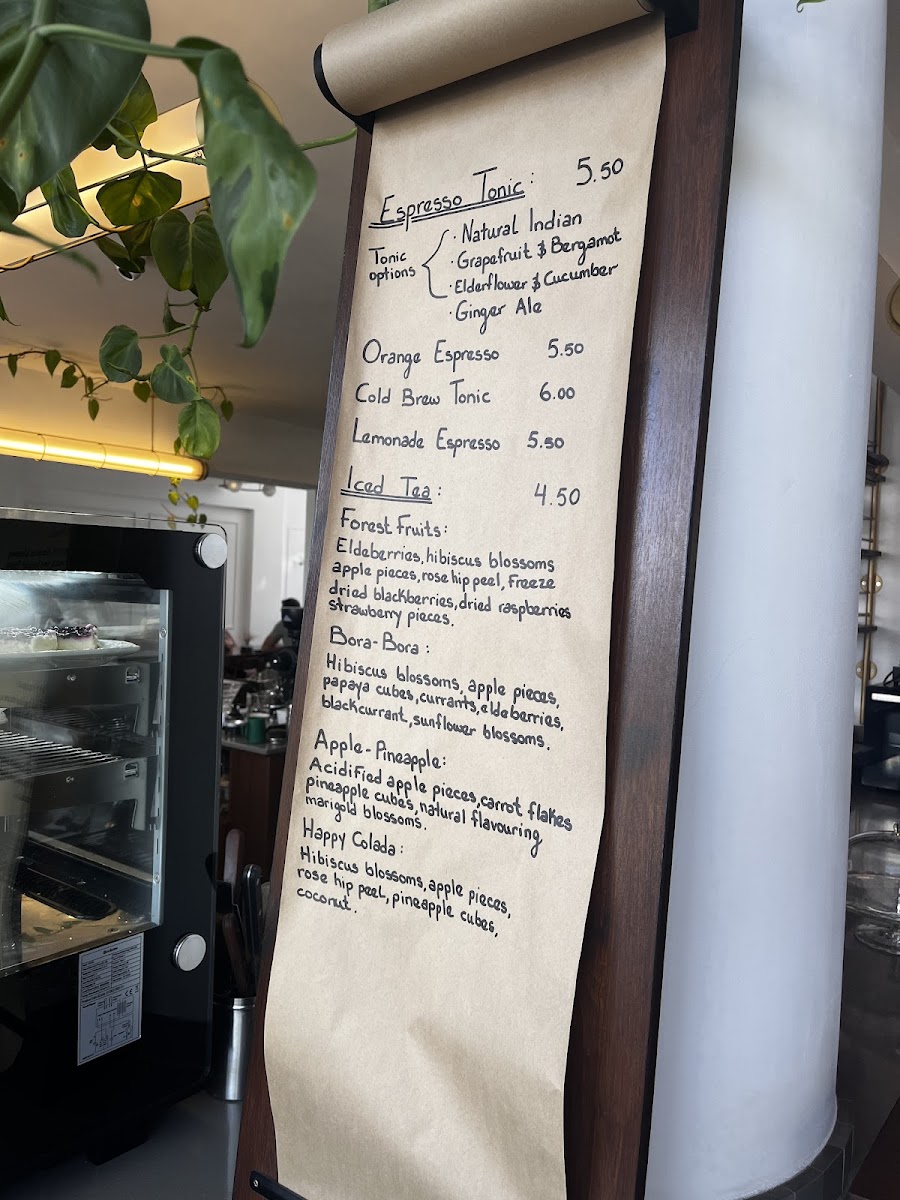 Espresso Tonic: 5.50
Tonic options
· Natural Indian
· Grapefruit & Bergamot
· Elderflower & Cucumber
· Ginger Ale
Orange Espresso 5.50
Cold Brew Tonic 6.00
Lemonade Espresso 5.50
Iced Tea: 4.50
Forest Fruits:
Eldeberries, hibiscus blossoms
apple pieces, rose hip peel, Freeze
dried blackberries, dried raspberries
strawberry pieces.
Bora-Bora:
Hibiscus blossoms, apple pieces,
papaya cubes, currants, eldeberries,
blackcurrant, sunflower blossoms.
Apple-Pineapple:
Acidified apple pieces, carrot flakes
pineapple cubes, natural flavouring
marigold blossoms.
Happy Colada:
Hibiscus blossoms, apple pieces,
rose hip peel, pineapple cubes,
coconut.